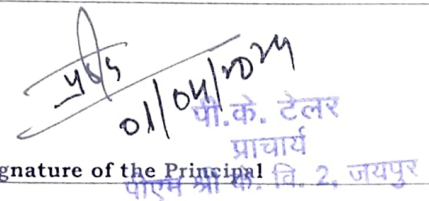 01/04/2024
पी.के. टेलर
प्राचार्य
gnature of the Principal
पीएम श्री के. वि. 2, जयपुर